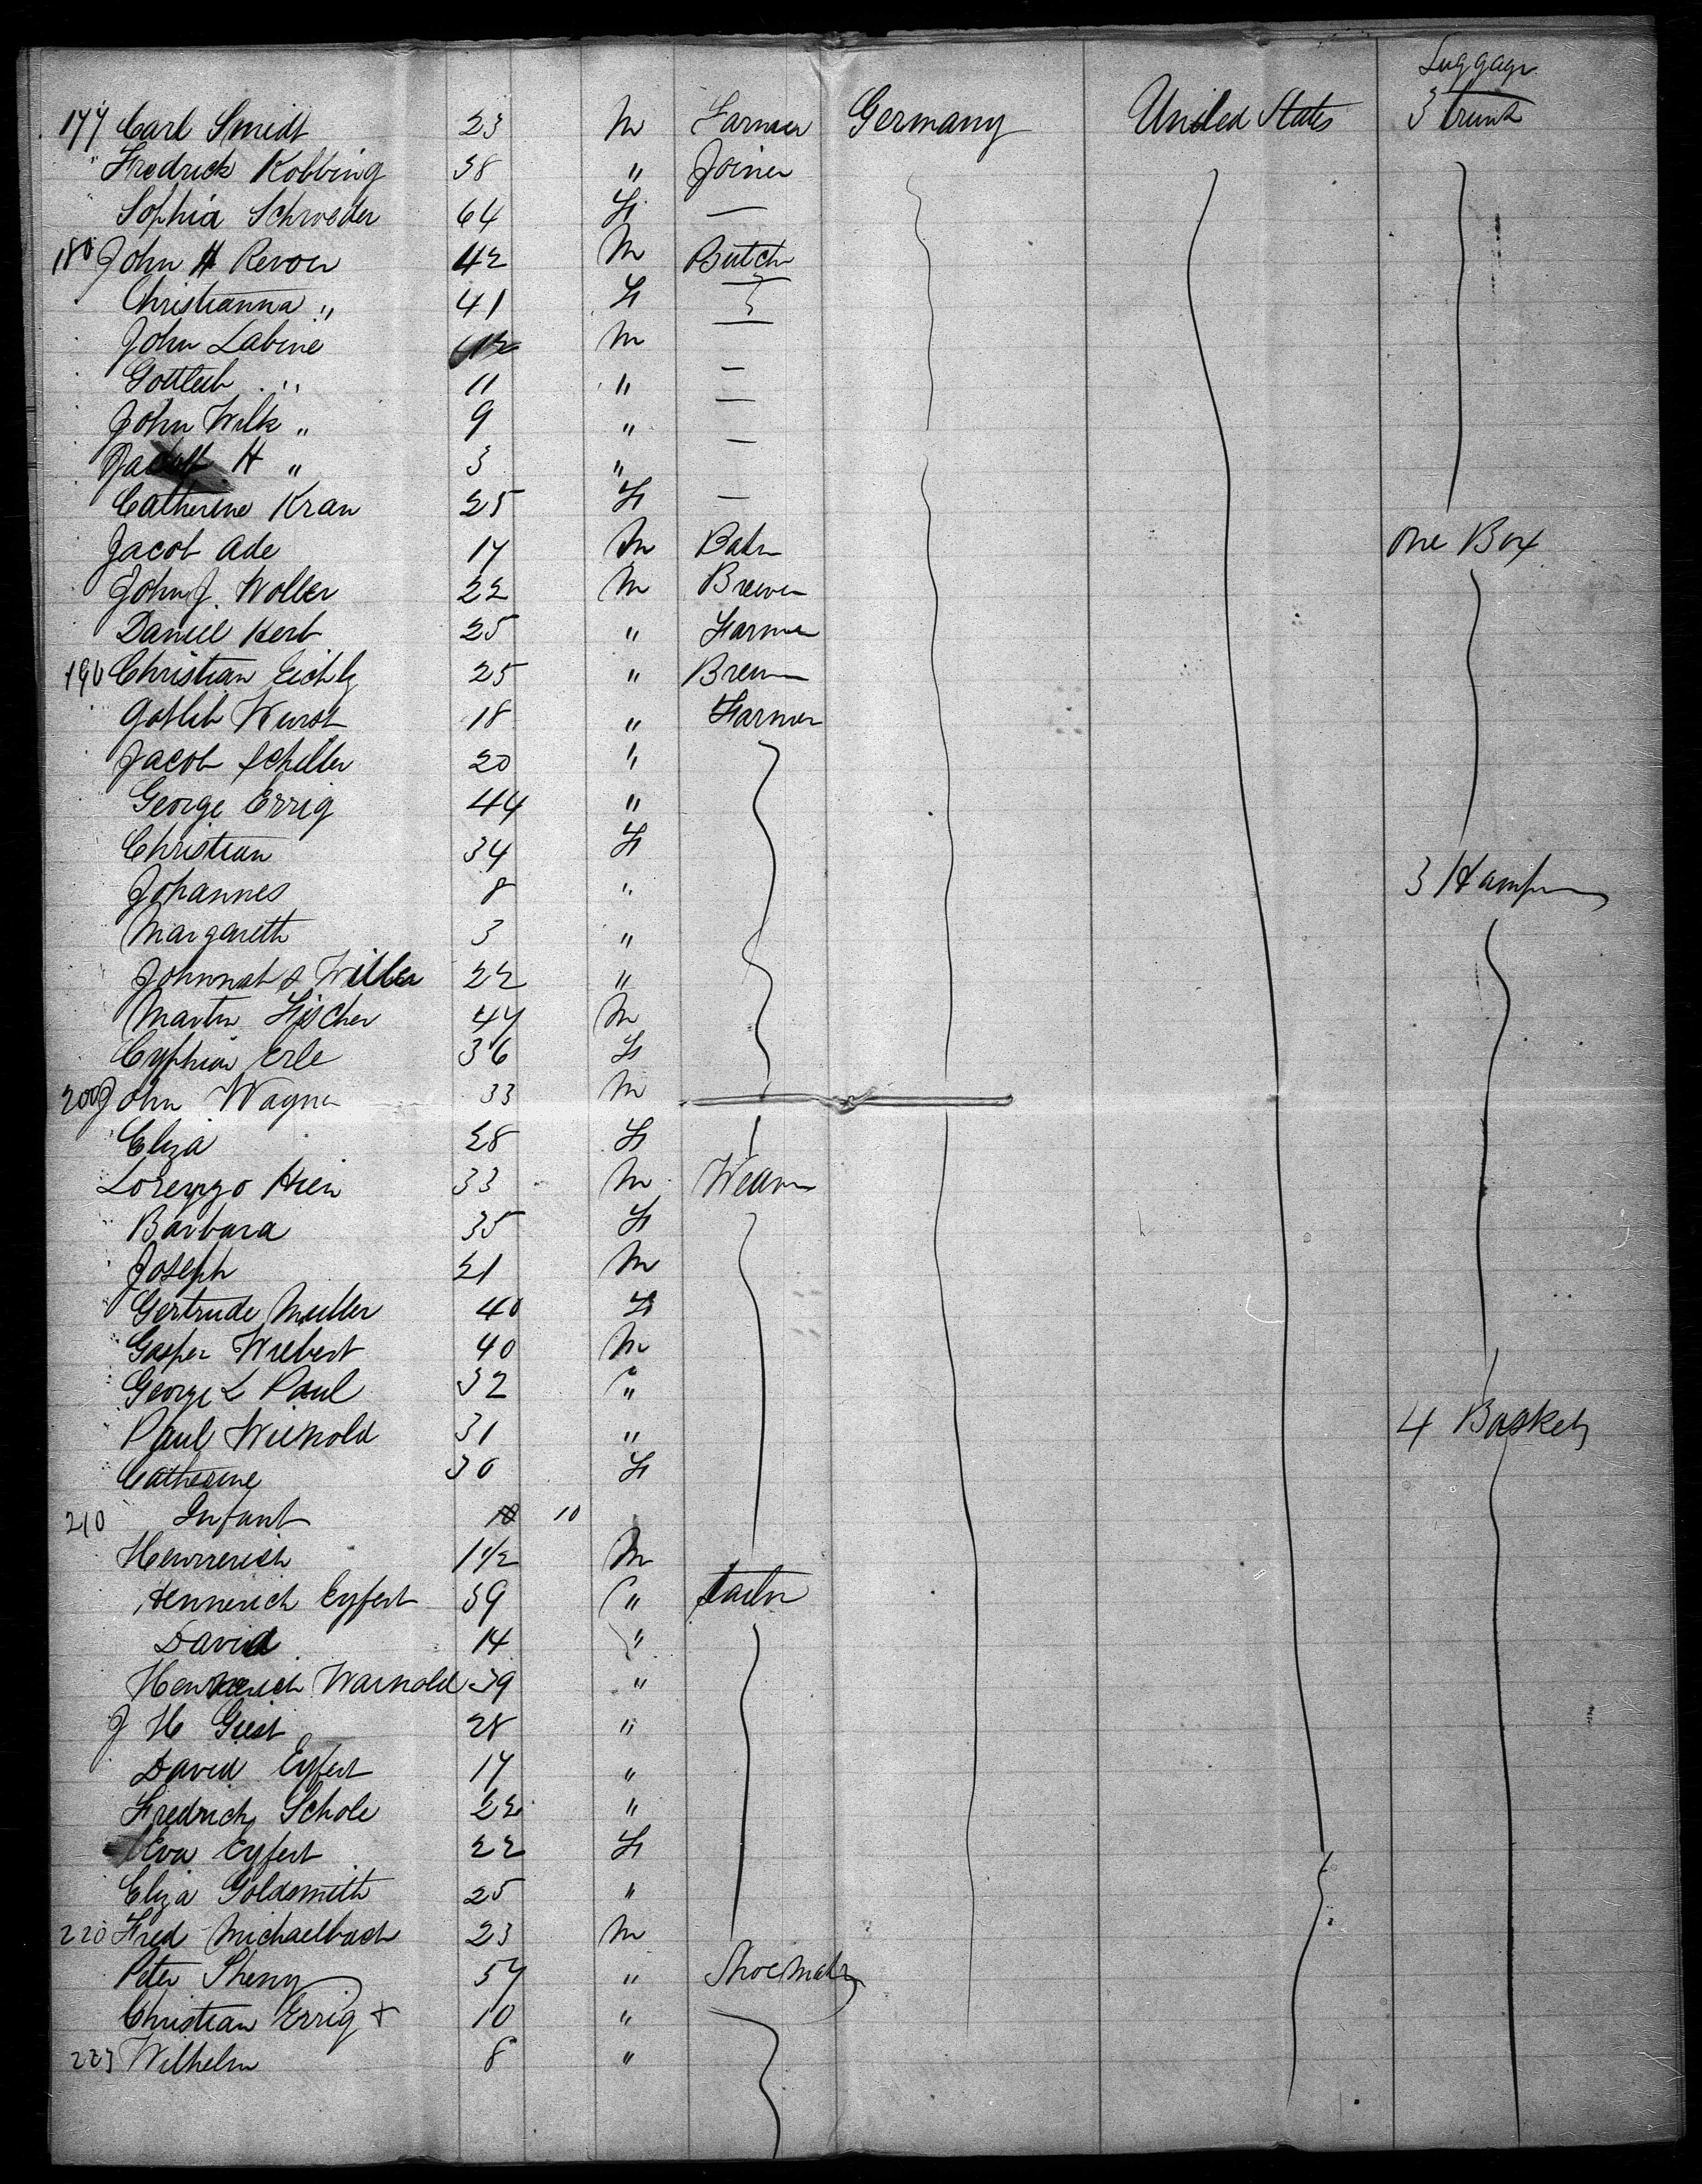 Luggage
177 Carl Smidt 23 M Farmer Germany United States 3 trunk
" Fredrick Kobbing 38 " Joiner
" Sophia Schroeder 64 F —
180 John H Revoir 42 M Butch
Christianna " 41 F —
John Labine M —
Gottlieb " 11 " —
John Wilk " 9 " —
H " 3 " —
Catherine Kran 25 F —
Jacob Ade 17 M Bakr One Box
John J. Woller 22 M Brewer
Daniel Kerb 25 " Farmer
190 Christian 25 " Brewer
Gotlib Wurst 18 " Farmer
Jacob Schiller 20 "
George Errig 44 "
Christian 34 F
Johannes 8 " 3 Hamp
Margareth 3 "
Willer 22 "
Martin Fischer 47 M
Erle 36 F
200 John Wagner 33 M
Eliza 28 F
Lorenzo Hien 33 M Weaver
Barbara 35 F
Joseph 21 M
Gertrude Muller 40 F
Gasper Wiebert 40 M
George L Paul 32 "
Paul Wienold 31 " 4 Baskets
Catherine 30 F
210 Infant 10
Hennerich 1 1/2 M
Hennerich Eyfert 39 " Tailor
David 14 "
Hennerich Warnold 39 "
J H Giest 28 "
David Eyfert 17 "
Fredrich Schole 22 "
Eva Eyfert 22 F
Eliza Goldsmith 25 "
220 Fred Michaelbach 23 M
Peter Sheny 57 " Shoemakr
Christian Errig + 10 "
223 Wilhelm 8 "